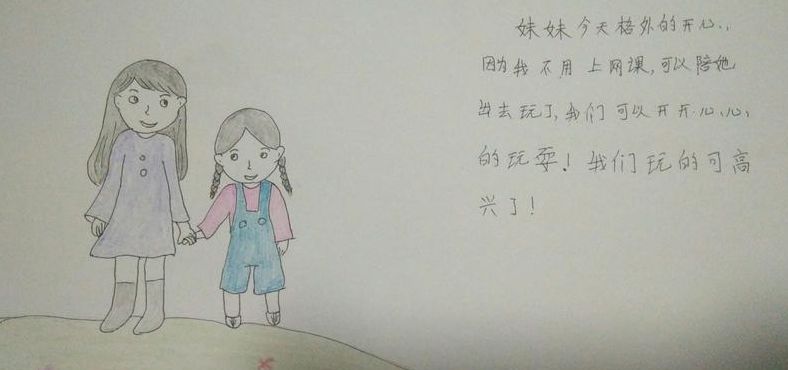 妹妹今天格外的开心,
因为我不用上网课,可以陪她
出去玩了,我们可以开开心心
的玩耍!我们玩的可高
兴了!